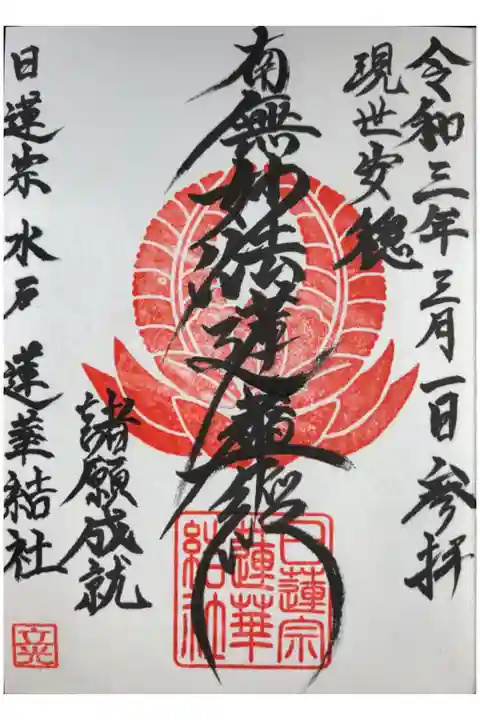 令和三年三月一日参拝
現世安穏
南無妙法蓮華経
諸願成就
日蓮宗 水戸 蓮華結社
日蓮宗
蓮華
結社
立光